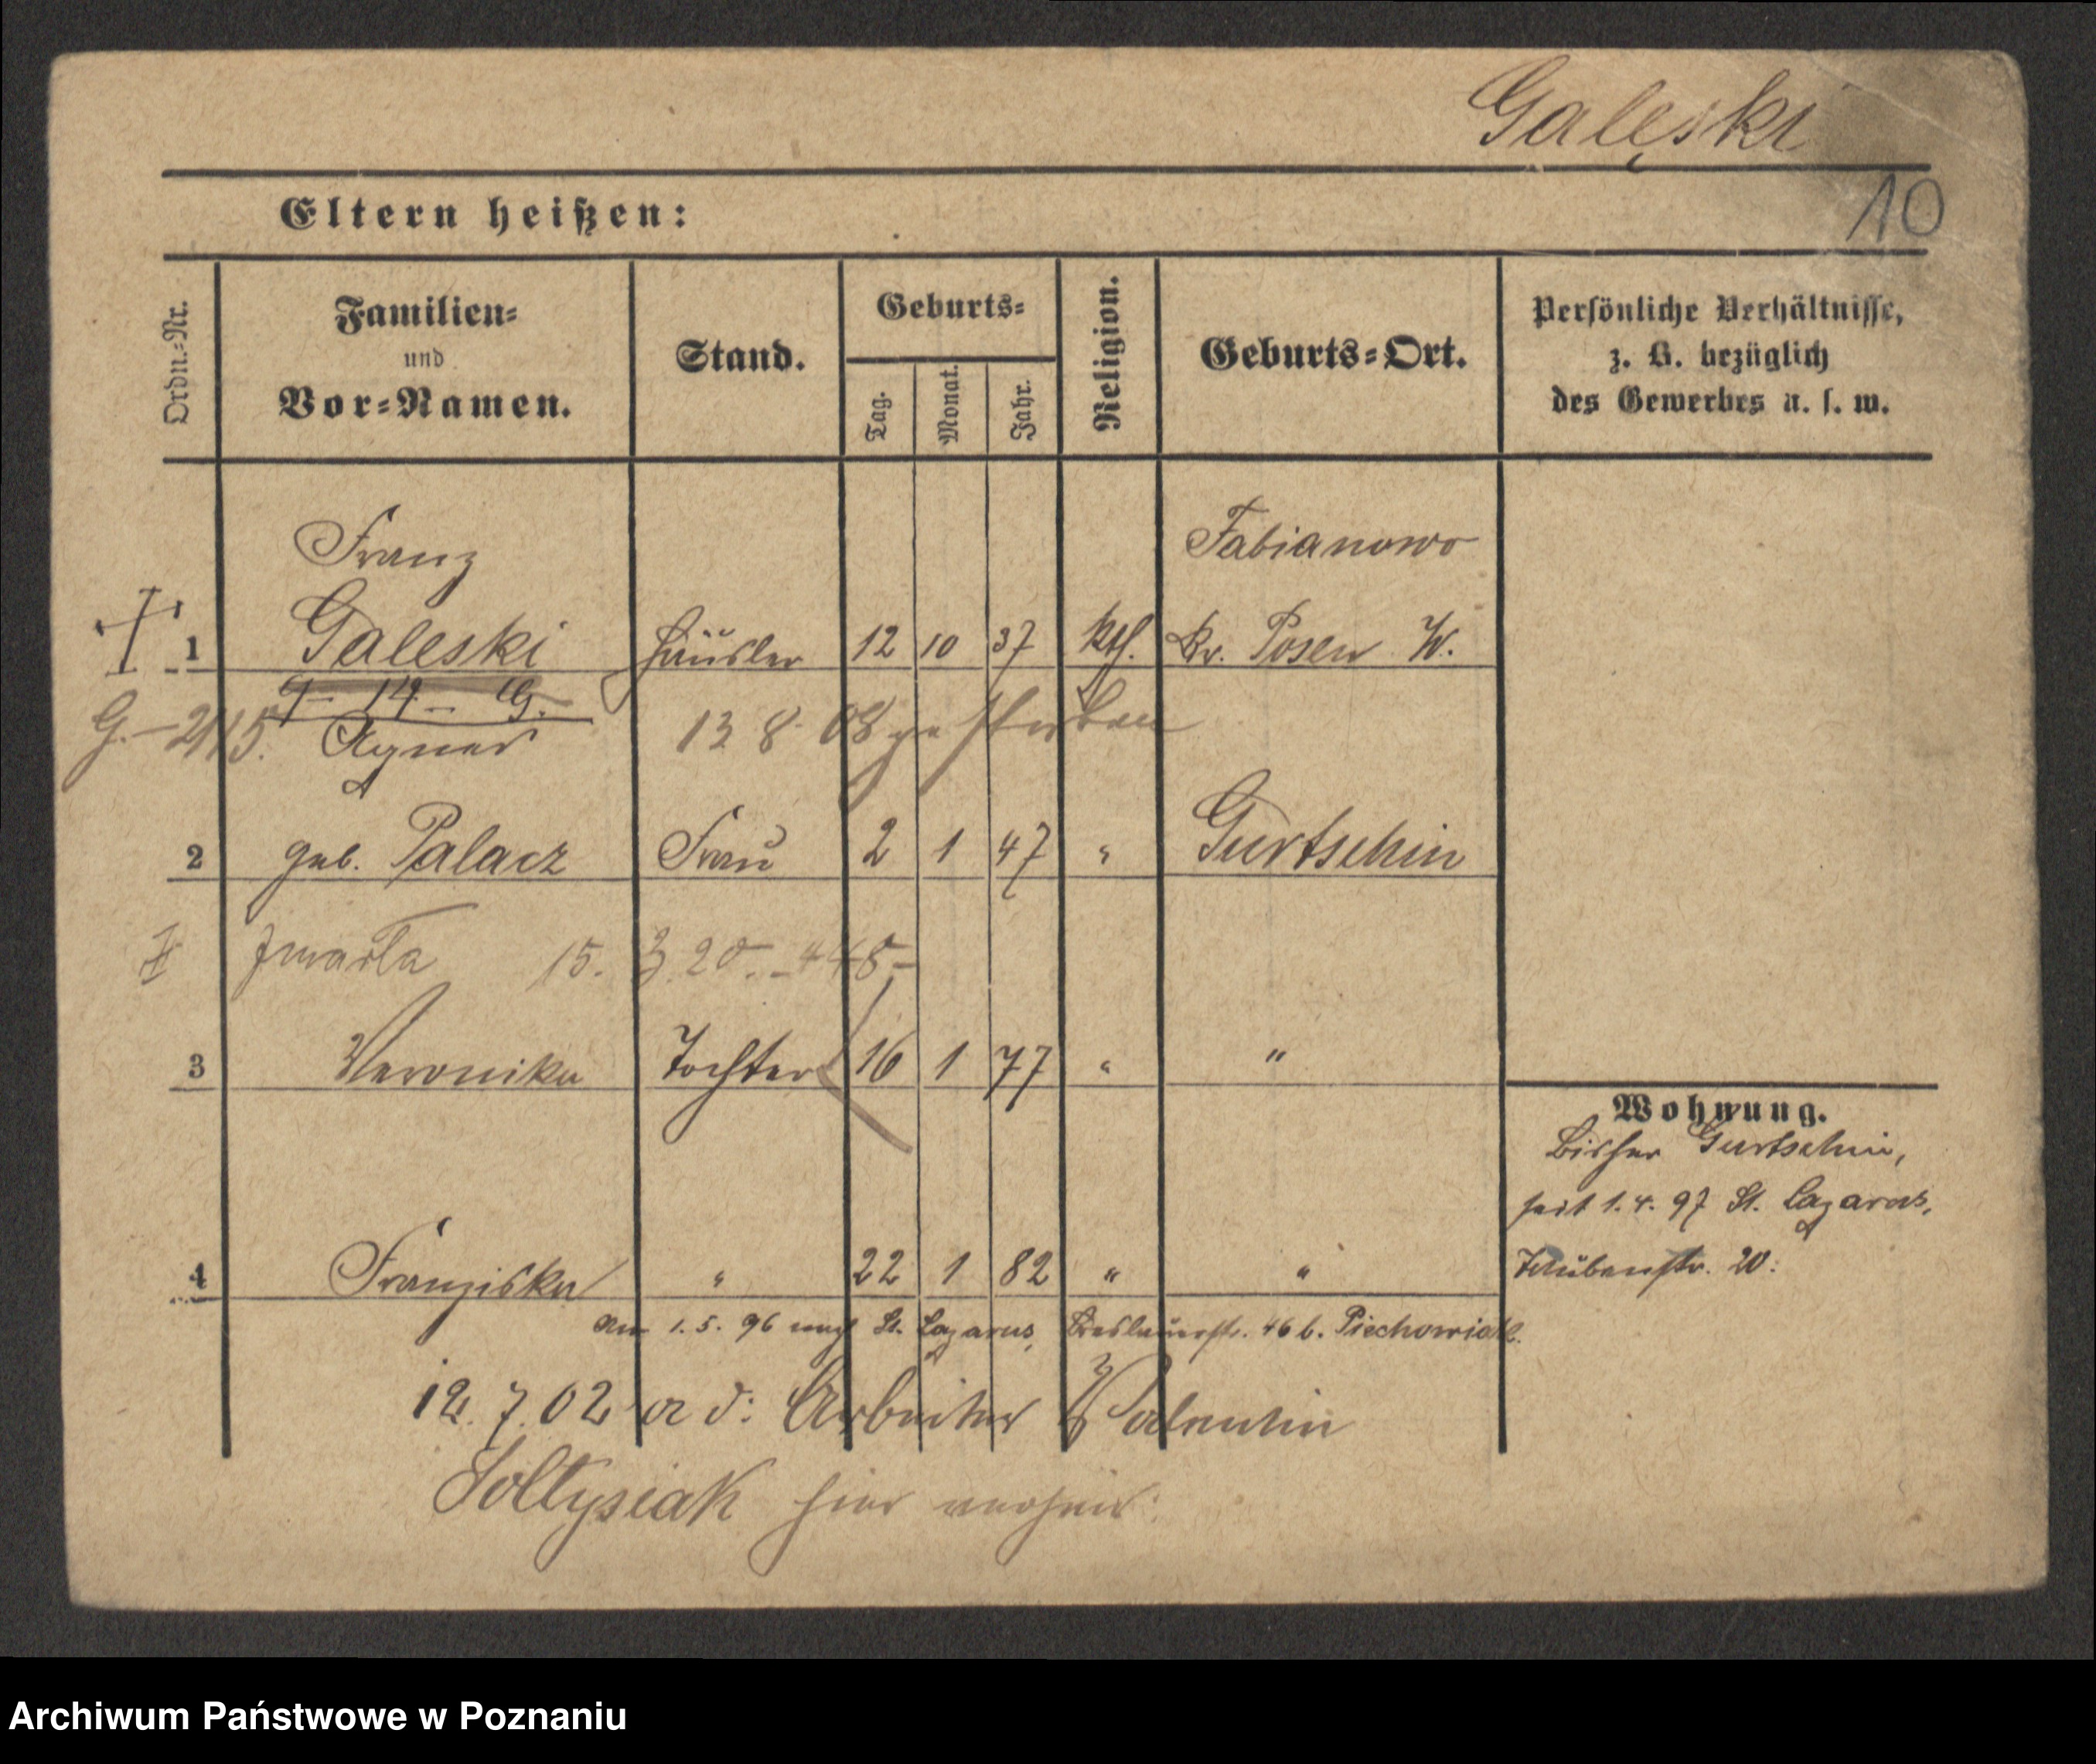 Galęski
10
Eltern heißen:
Ordn.-Nr.
Familien-
und
Vor-Namen.
Stand.
Geburts-
Tag.
Monat.
Jahr.
Religion.
Geburts-Ort.
Persönliche Verhältnisse,
z. B. bezüglich
des Gewerbes u. s. w.
Franz Fabianowo
1 Galeski Häusler 12 10 37 kth. Kr. Posen W.
G.-215. Agnes 13 8 08 gestorben
2 geb. Palacz Frau 2 1 47 " Gurtschin
zmarła 15. 3. 20. - 448-
3 Veronika Tochter 16 1 77 " "
Wohnung.
Bisher Gurtschin,
seit 1. 4. 97 St. Lazarus,
20.
4 Franziska " 22 1 82 " "
Am 1. 5. 96 nach St. Lazarus, Breslauerstr. 46 b. Piechowiak.
12. 7. 02 a d: Arbeiter Valentin
Soltysiak hier verheir:
Archiwum Państwowe w Poznaniu